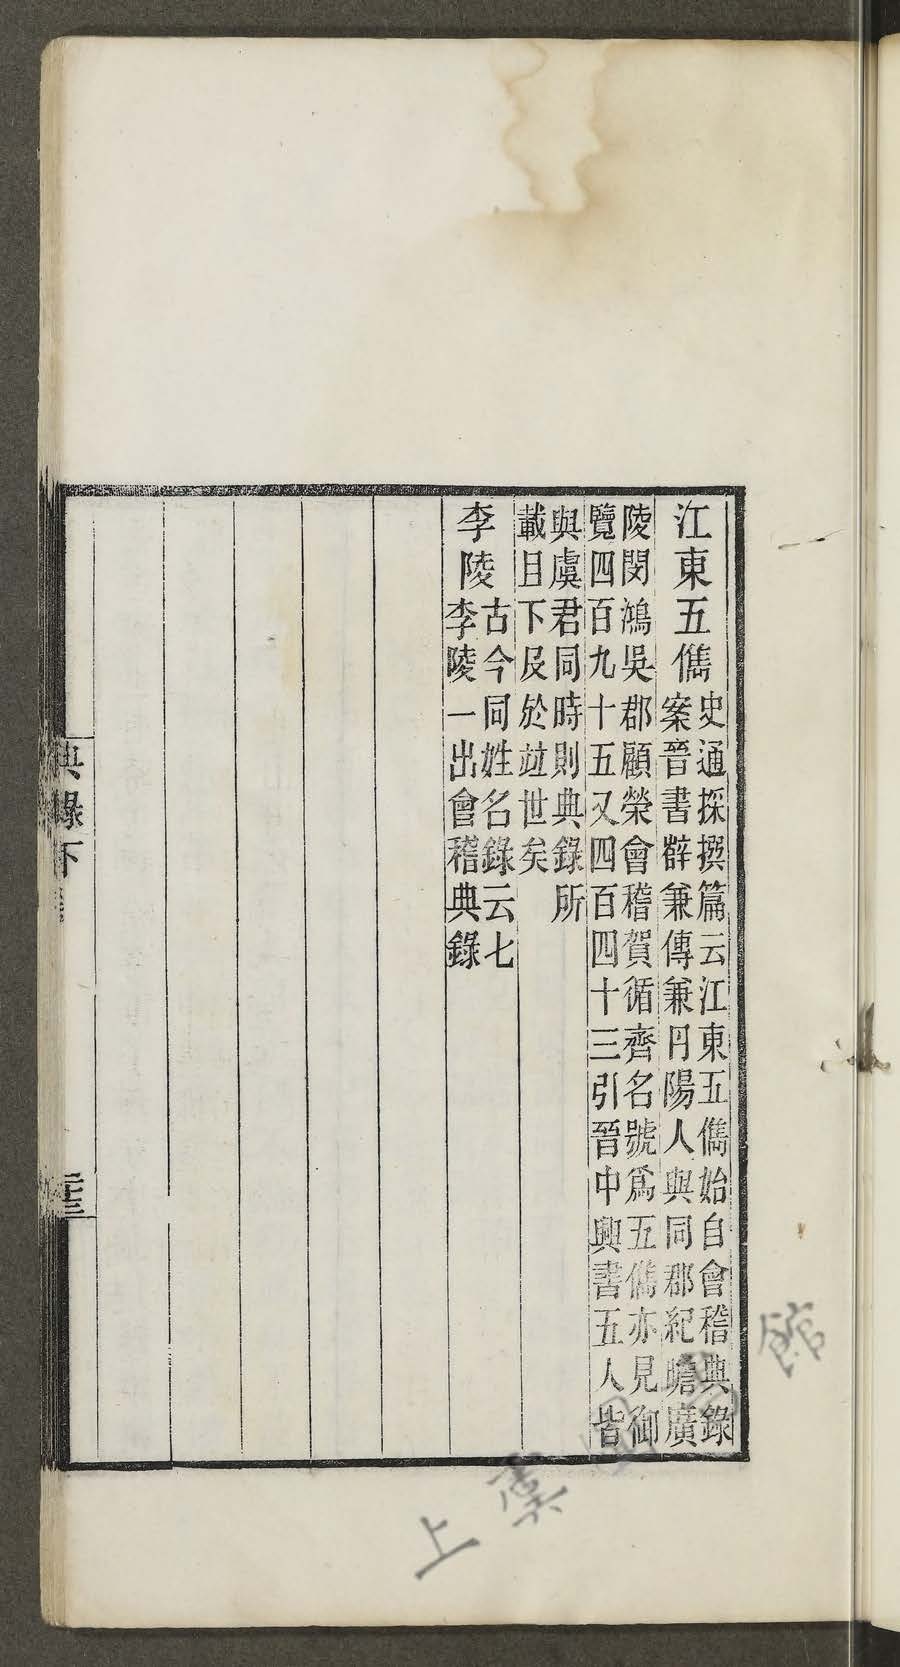 江東五儁
史通採撰篇云江東五儁始自會稽典錄
案晉書薛兼傳兼丹陽人與同郡紀瞻廣
陵閔鴻吳郡顧榮會稽賀循齊名號爲五儁亦見御
覽四百九十五又四百四十三引晉中興書五人皆
與虞君同時則典錄所
載且下及於竝世矣
李陵
古今同姓名錄云七
李陵一出會稽典錄
典錄下
二十三
上虞圖書館